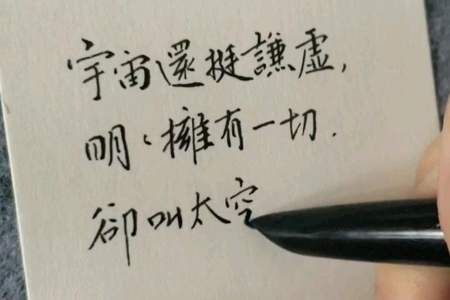 宇宙還挺謙虛,
明、擁有一切.
卻叫太空